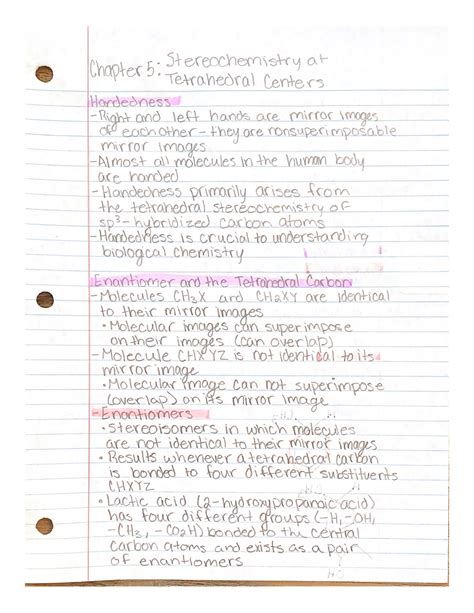 Chapter 5: Stereochemistry at
Tetrahedral Centers
Handedness
- Right and left hands are mirror images
of each other - they are nonsuperimposable
mirror images
- Almost all molecules in the human body
are handed
- Handedness primarily arises from
the tetrahedral stereochemistry of
sp³- hybridized carbon atoms
- Handedness is crucial to understanding
biological chemistry
Enantiomer and the Tetrahedral Carbon
- Molecules CH₃X and CH₂XY are identical
to their mirror images
• Molecular images can superimpose
on their images (can overlap)
- Molecule CHXYZ is not identical to its
mirror image
• Molecular image can not superimpose
(overlap) on its mirror image
- Enantiomers
• Stereoisomers in which molecules
are not identical to their mirror images
• Results whenever a tetrahedral carbon
is bonded to four different substituents
CHXYZ
• Lactic acid (2-hydroxypropanoic acid)
has four different groups (-H, -OH,
-CH₃, -CO₂H) bonded to the central
carbon atoms and exists as a pair
of enantiomers